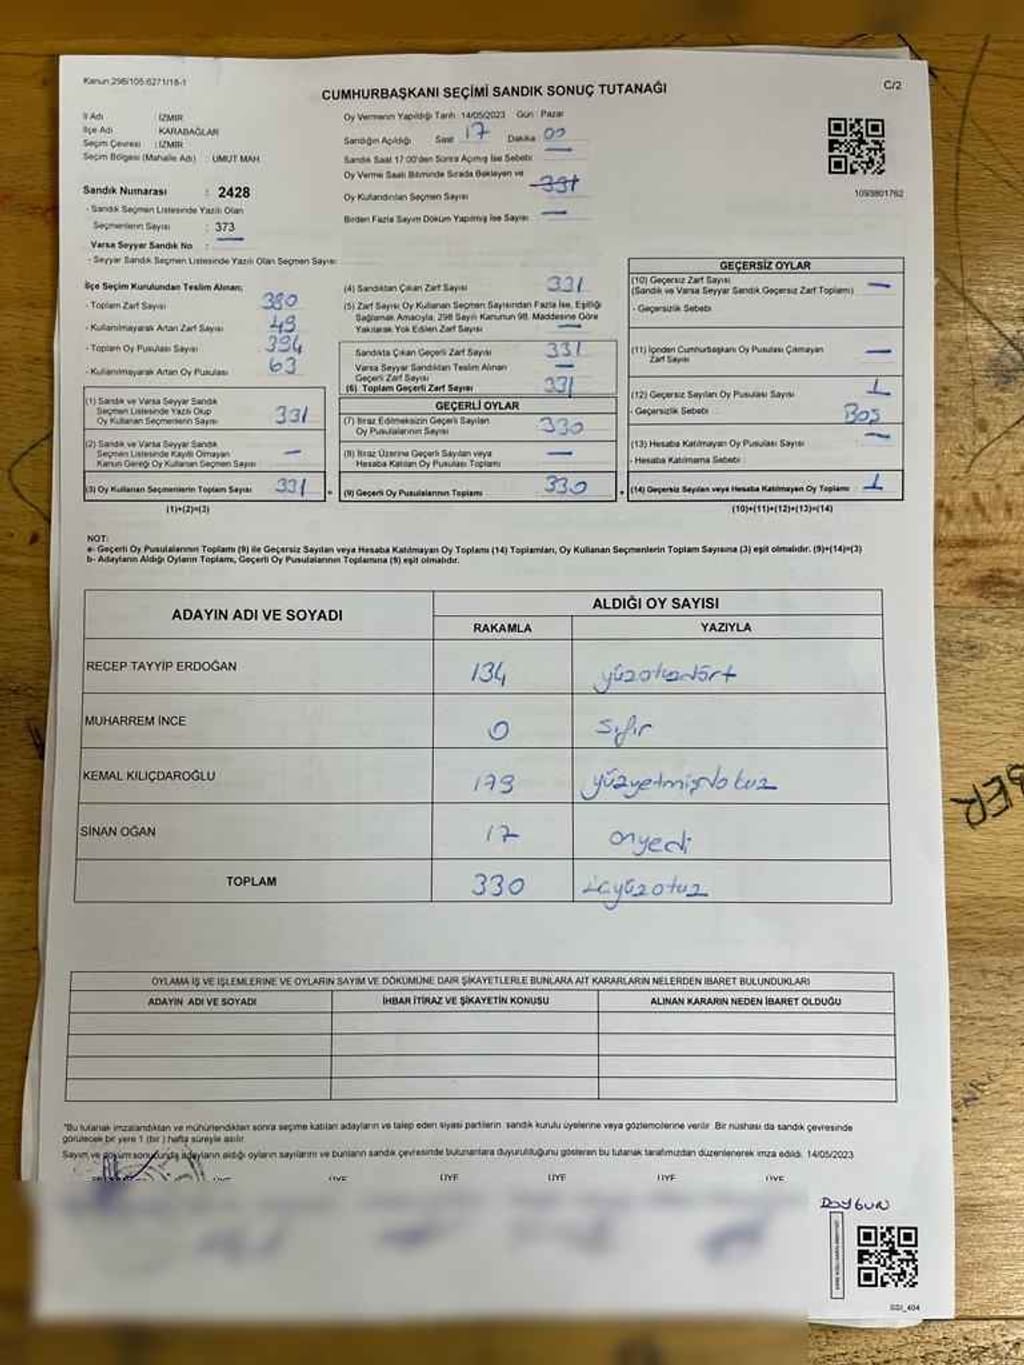 Kanun:298/105.6271/16-1
C/2
CUMHURBAŞKANI SEÇİMİ SANDIK SONUÇ TUTANAĞI
İl Adı : İZMİR
İlçe Adı : KARABAĞLAR
Seçim Çevresi : İZMİR
Seçim Bölgesi (Mahalle Adı) : UMUT MAH.
Sandık Numarası : 2428
- Sandık Seçmen Listesinde Yazılı Olan
Seçmenlerin Sayısı : 373
Varsa Seyyar Sandık No : —
- Seyyar Sandık Seçmen Listesinde Yazılı Olan Seçmen Sayısı:
Oy Vermenin Yapıldığı Tarih: 14/05/2023 Gün : Pazar
Sandığın Açıldığı Saat : 17 Dakika : 00
Sandık Saat 17:00'den Sonra Açılmış İse Sebebi: —
Oy Verme Saati Bitiminde Sırada Bekleyen ve
Oy Kullandırılan Seçmen Sayısı : 331
Birden Fazla Sayım Döküm Yapılmış İse Sayısı : —
1093801762
İlçe Seçim Kurulundan Teslim Alınan:
- Toplam Zarf Sayısı : 380
- Kullanılmayarak Artan Zarf Sayısı : 49
- Toplam Oy Pusulası Sayısı : 394
- Kullanılmayarak Artan Oy Pusulası : 63
(1) Sandık ve Varsa Seyyar Sandık
Seçmen Listesinde Yazılı Olup
Oy Kullanan Seçmenlerin Sayısı : 331
(2) Sandık ve Varsa Seyyar Sandık
Seçmen Listesinde Kayıtlı Olmayan
Kanun Gereği Oy Kullanan Seçmen Sayısı : —
(3) Oy Kullanan Seçmenlerin Toplam Sayısı : 331
(1)+(2)=(3)
(4) Sandıktan Çıkan Zarf Sayısı : 331
(5) Zarf Sayısı Oy Kullanan Seçmen Sayısından Fazla İse, Eşitliği
Sağlamak Amacıyla, 298 Sayılı Kanunun 98. Maddesine Göre
Yakılarak Yok Edilen Zarf Sayısı : —
Sandıkta Çıkan Geçerli Zarf Sayısı : 331
Varsa Seyyar Sandıktan Teslim Alınan
Geçerli Zarf Sayısı : —
(6) Toplam Geçerli Zarf Sayısı : 331
GEÇERLİ OYLAR
(7) İtiraz Edilmeksizin Geçerli Sayılan
Oy Pusulalarının Sayısı : 330
(8) İtiraz Üzerine Geçerli Sayılan veya
Hesaba Katılan Oy Pusulası Toplamı : —
(9) Geçerli Oy Pusulalarının Toplamı : 330
GEÇERSİZ OYLAR
(10) Geçersiz Zarf Sayısı : —
(Sandık ve Varsa Seyyar Sandık Geçersiz Zarf Toplamı)
- Geçersizlik Sebebi :
(11) İçinden Cumhurbaşkanı Oy Pusulası Çıkmayan
Zarf Sayısı : —
(12) Geçersiz Sayılan Oy Pusulası Sayısı : 1
- Geçersizlik Sebebi : Boş
(13) Hesaba Katılmayan Oy Pusulası Sayısı : —
- Hesaba Katılmama Sebebi :
(14) Geçersiz Sayılan veya Hesaba Katılmayan Oy Toplamı : 1
(10)+(11)+(12)+(13)=(14)
NOT:
a- Geçerli Oy Pusulalarının Toplamı (9) ile Geçersiz Sayılan veya Hesaba Katılmayan Oy Toplamı (14) Toplamları, Oy Kullanan Seçmenlerin Toplam Sayısına (3) eşit olmalıdır. (9)+(14)=(3)
b- Adayların Aldığı Oyların Toplamı, Geçerli Oy Pusulalarının Toplamına (9) eşit olmalıdır.
ADAYIN ADI VE SOYADI
ALDIĞI OY SAYISI
RAKAMLA YAZIYLA
RECEP TAYYİP ERDOĞAN 134 yüzotuzdört
MUHARREM İNCE 0 sıfır
KEMAL KILIÇDAROĞLU 179 yüzyetmişdokuz
SİNAN OĞAN 17 onyedi
TOPLAM 330 üçyüzotuz
OYLAMA İŞ VE İŞLEMLERİNE VE OYLARIN SAYIM VE DÖKÜMÜNE DAİR ŞİKAYETLERLE BUNLARA AİT KARARLARIN NELERDEN İBARET BULUNDUKLARI
ADAYIN ADI VE SOYADI İHBAR İTİRAZ VE ŞİKAYETİN KONUSU ALINAN KARARIN NEDEN İBARET OLDUĞU
"Bu tutanak imzalandıktan ve mühürlendikten sonra seçime katılan adayların ve talep eden siyasi partilerin sandık kurulu üyelerine veya gözlemcilerine verilir. Bir nüshası da sandık çevresinde
görülecek bir yere 1 (bir) hafta süreyle asılır.
Sayım ve döküm sonucunda adayların aldığı oyların sayılarını ve bunların sandık çevresinde bulunanlara duyurulduğunu gösteren bu tutanak tarafımızdan düzenlenerek imza edildi. 14/05/2023
ÜYE ÜYE ÜYE ÜYE ÜYE ÜYE
DOYGUN
SSİ_404
BER